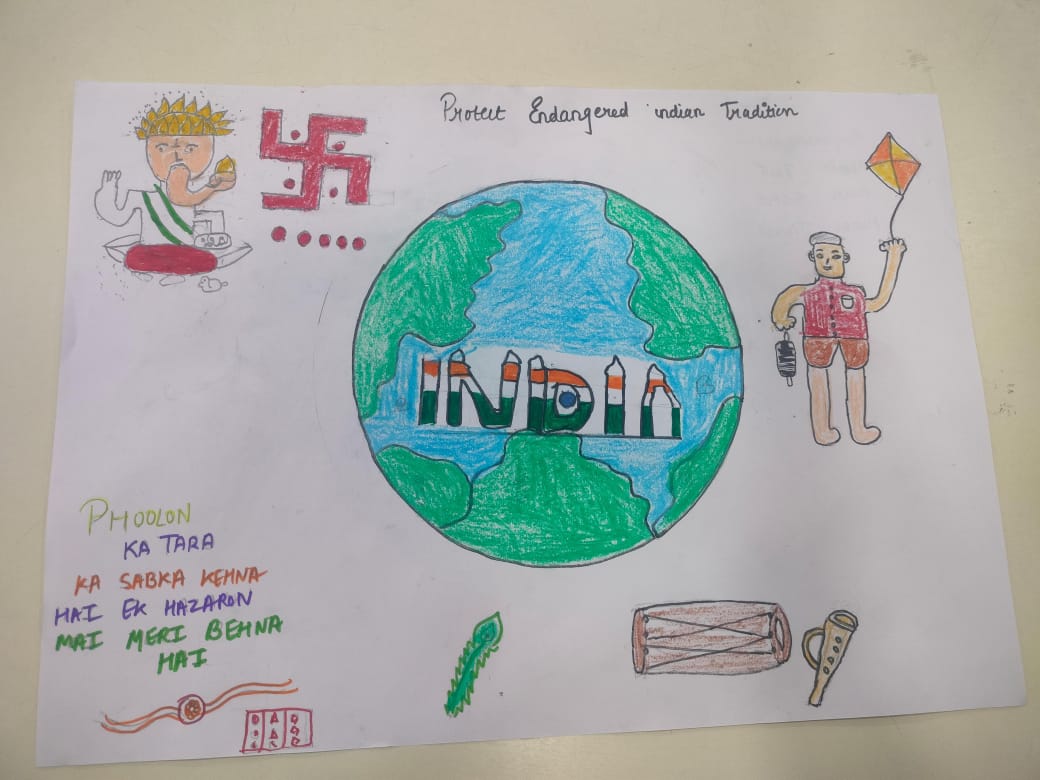 Protect Endangered indian Tradition
INDIA
PHOOLON
KA TARA
KA SABKA KEHNA
HAI EK HAZARON
MAI MERI BEHNA
HAI